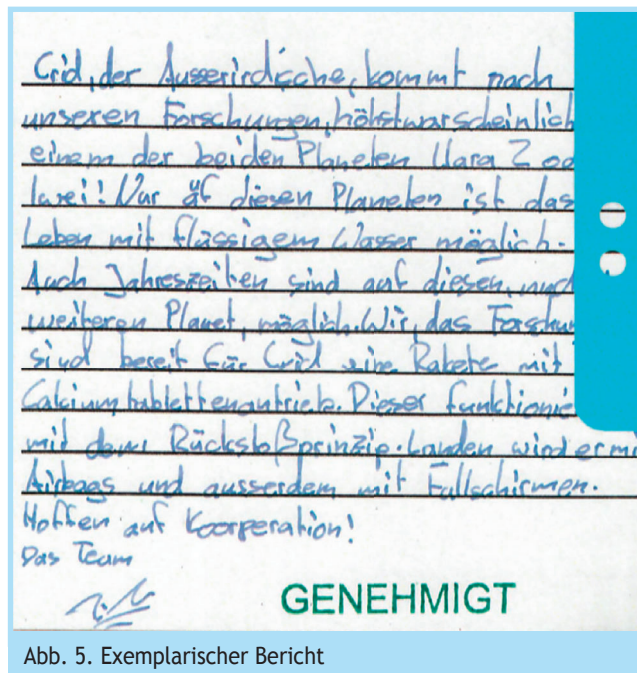 Crid, der Ausserirdische, kommt nach
unseren Forschungen, höhstwarscheinlich
einem der beiden Planeten Uara 2 od
lurei! Nur äf diesen Planeten ist das
Leben mit flüssigem Wasser möglich.
Auch Jahreszeiten sind auf diesen, und
weiteren Planet, möglich. Wir, das Forschun
sind bereit für Crid eine Rakete mit
Calciumtablettenantrieb. Dieser funktionie
mit dem Rückstoßprinzip. Landen wird er mi
Airbags und ausserdem mit Fallschirmen.
Hoffen auf Koorperation!
Das Team
GENEHMIGT
Abb. 5. Exemplarischer Bericht